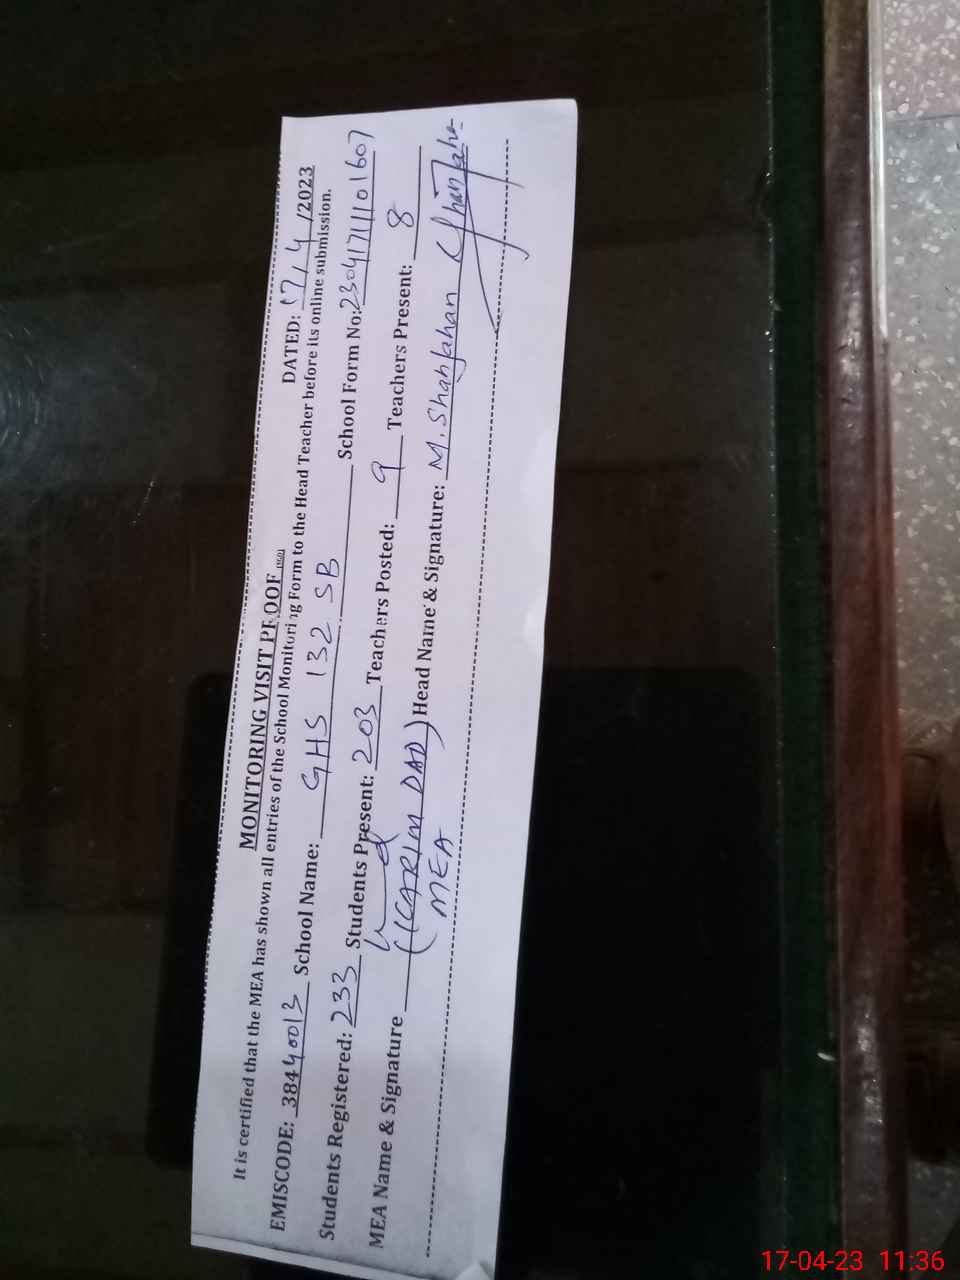 MONITORING VISIT PROOF DATED: 17/4/2023
It is certified that the MEA has shown all entries of the School Monitoring Form to the Head Teacher before its online submission.
EMISCODE: 38440013 School Name: GHS 132 SB School Form No: 2304171110 1607
Students Registered: 233 Students Present: 203 Teachers Posted: 9 Teachers Present: 8
MEA Name & Signature (KARIM DAD) Head Name & Signature: M. Shahjahan
MEA
17-04-23 11:36